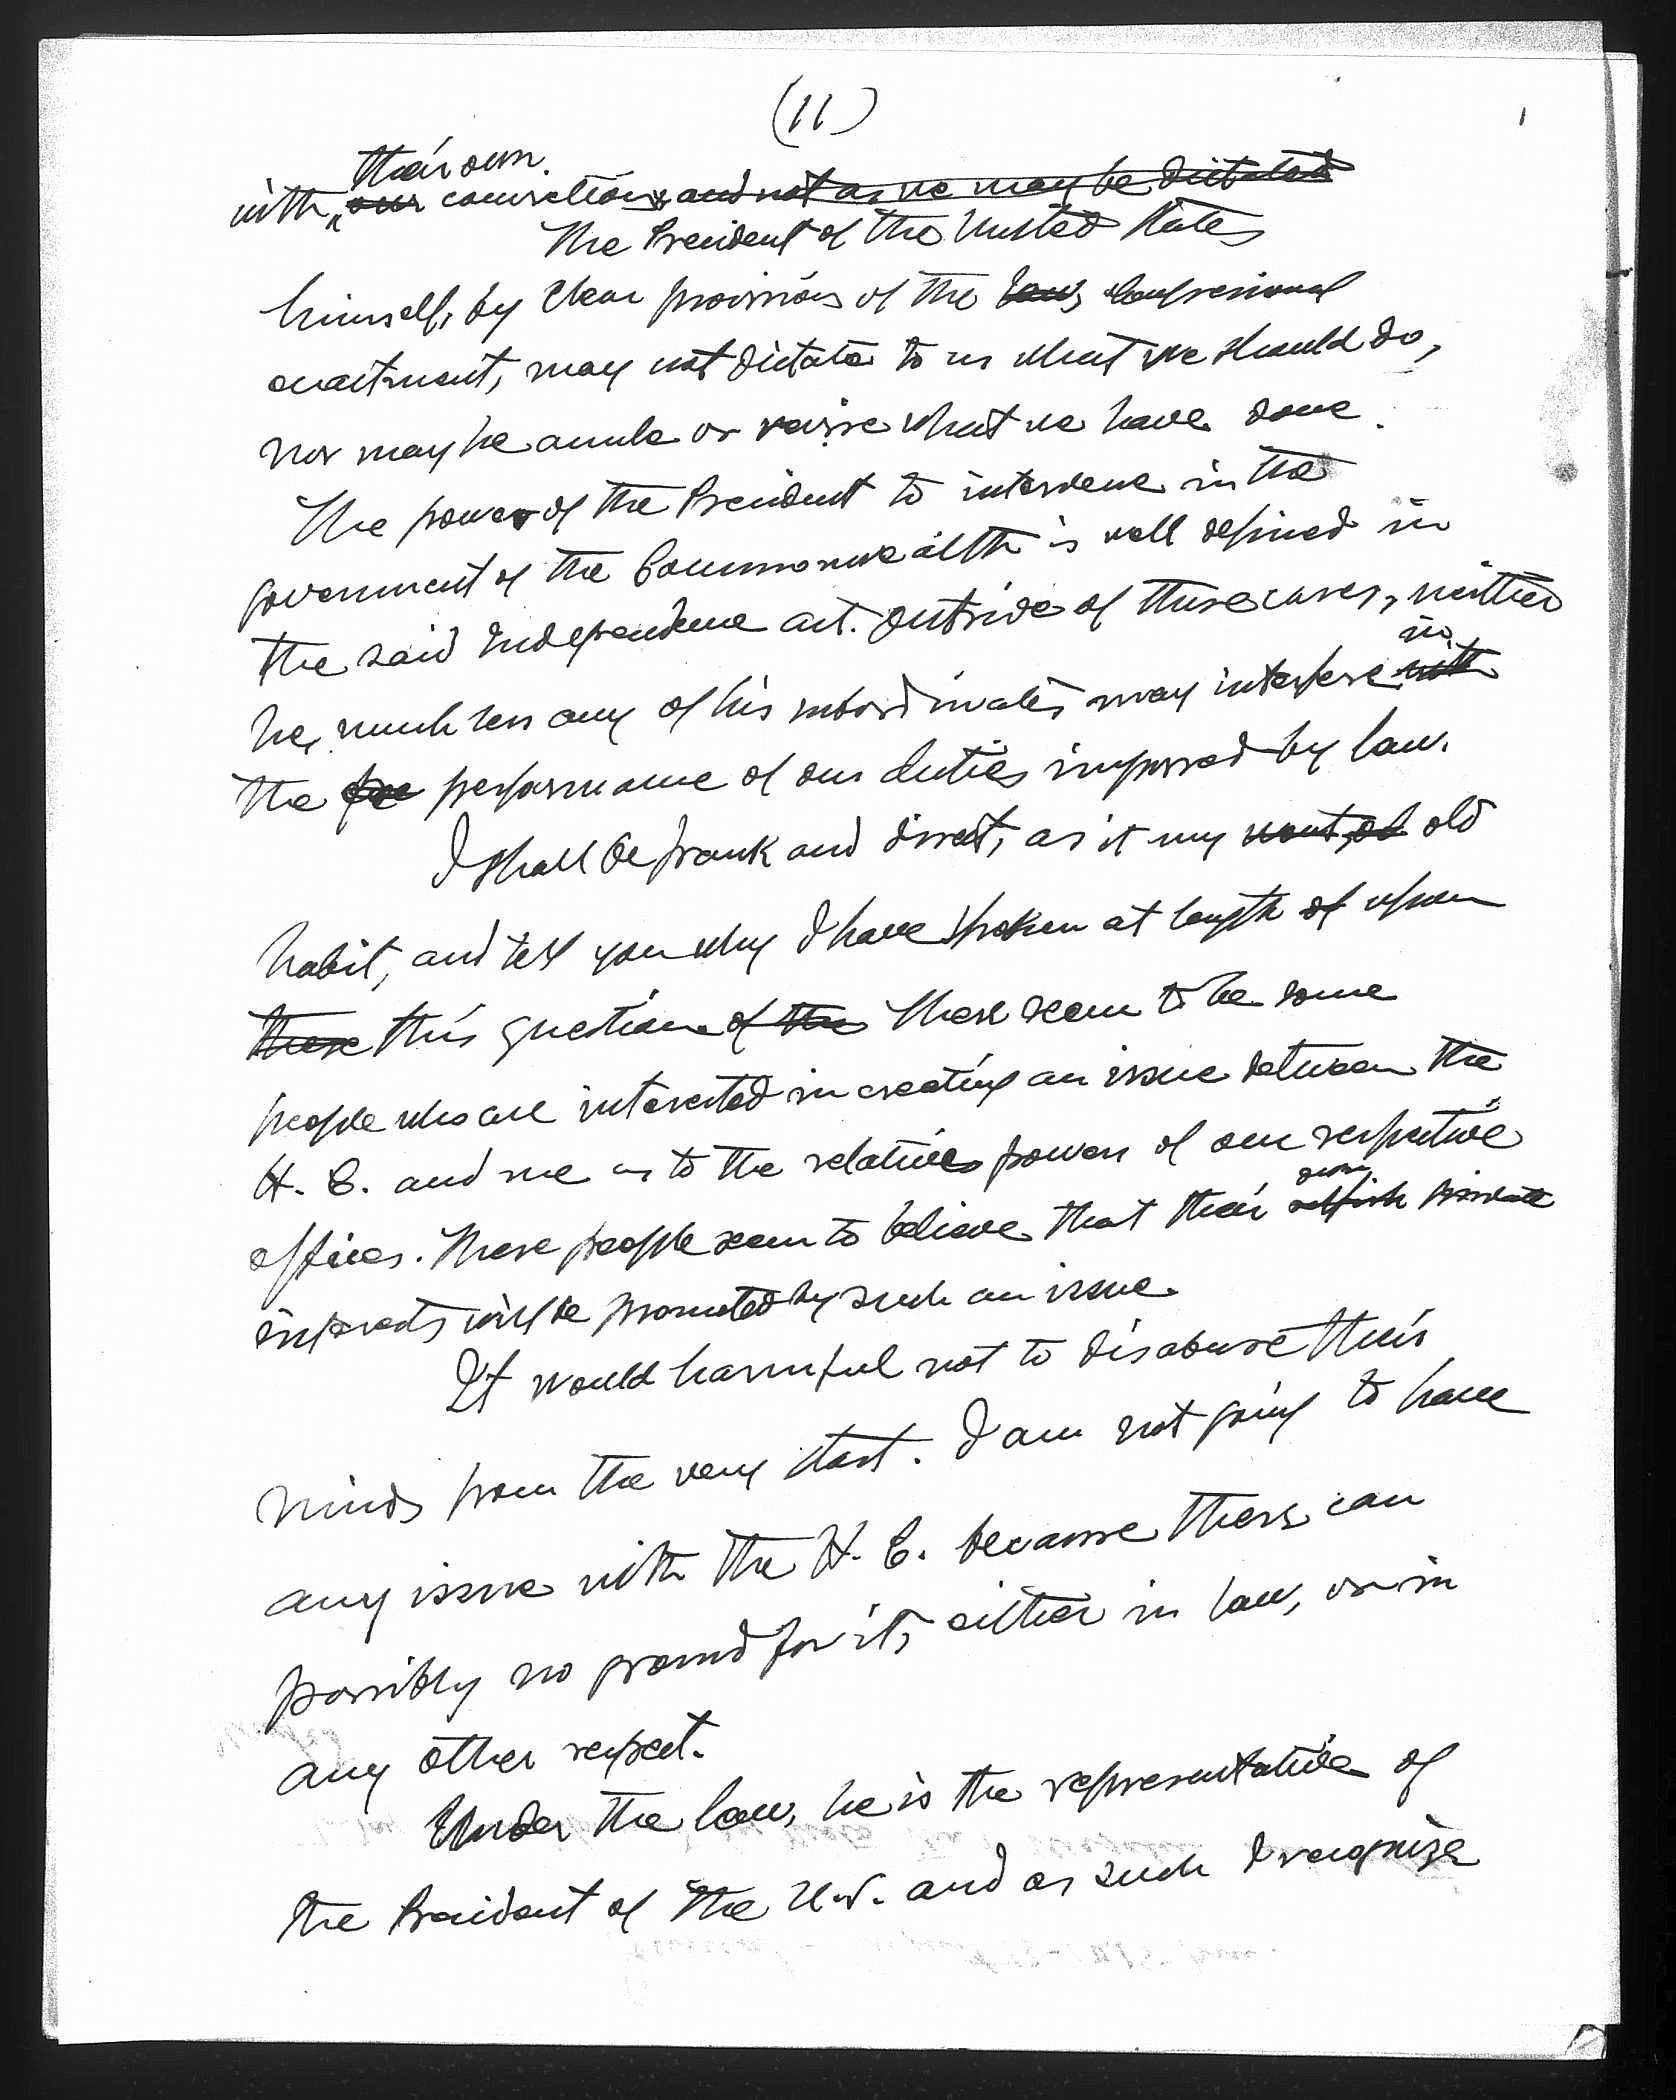 (11)
their own
with our convictions and not as we may be dictated
The President of the United States
himself, by clear provisions of the law, congressional
enactment, may not dictate to us what we should do,
nor may he annule or revise what we have done.
The power of the President to intervene in the
government of the Commonwealth is well defined in
the said Independence act. Outside of those cases, neither
in
he, much less any of his subordinates may interfere with
the performance of our duties imposed by law.
I shall be frank and direct, as it my wont, old
habit, and tell you why I have spoken at length of upon
these this question of the There seem to be some
people who are interested in creating an issue between the
H. C. and me as to the relative powers of our respective
own
offices. These people seem to believe that their selfish private
interests will be promoted by such an issue.
It would harmful not to disabuse their
minds from the very start. I am not going to have
any issue with the H. C. because there can
possibly no ground for it, either in law, or in
any other respect.
Under the law, he is the representative of
the President of the U.S. and as such I recognize